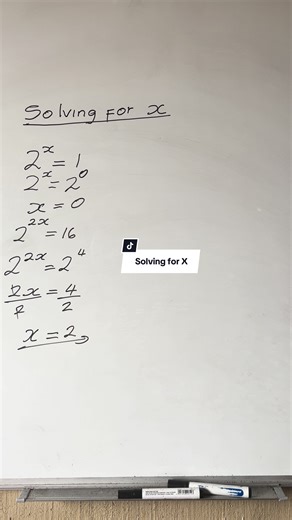 Solving for x
2^x = 1
2^x = 2^0
x = 0
2^2x = 16
2^2x = 2^4
2x/2 = 4/2
x = 2
Solving for X